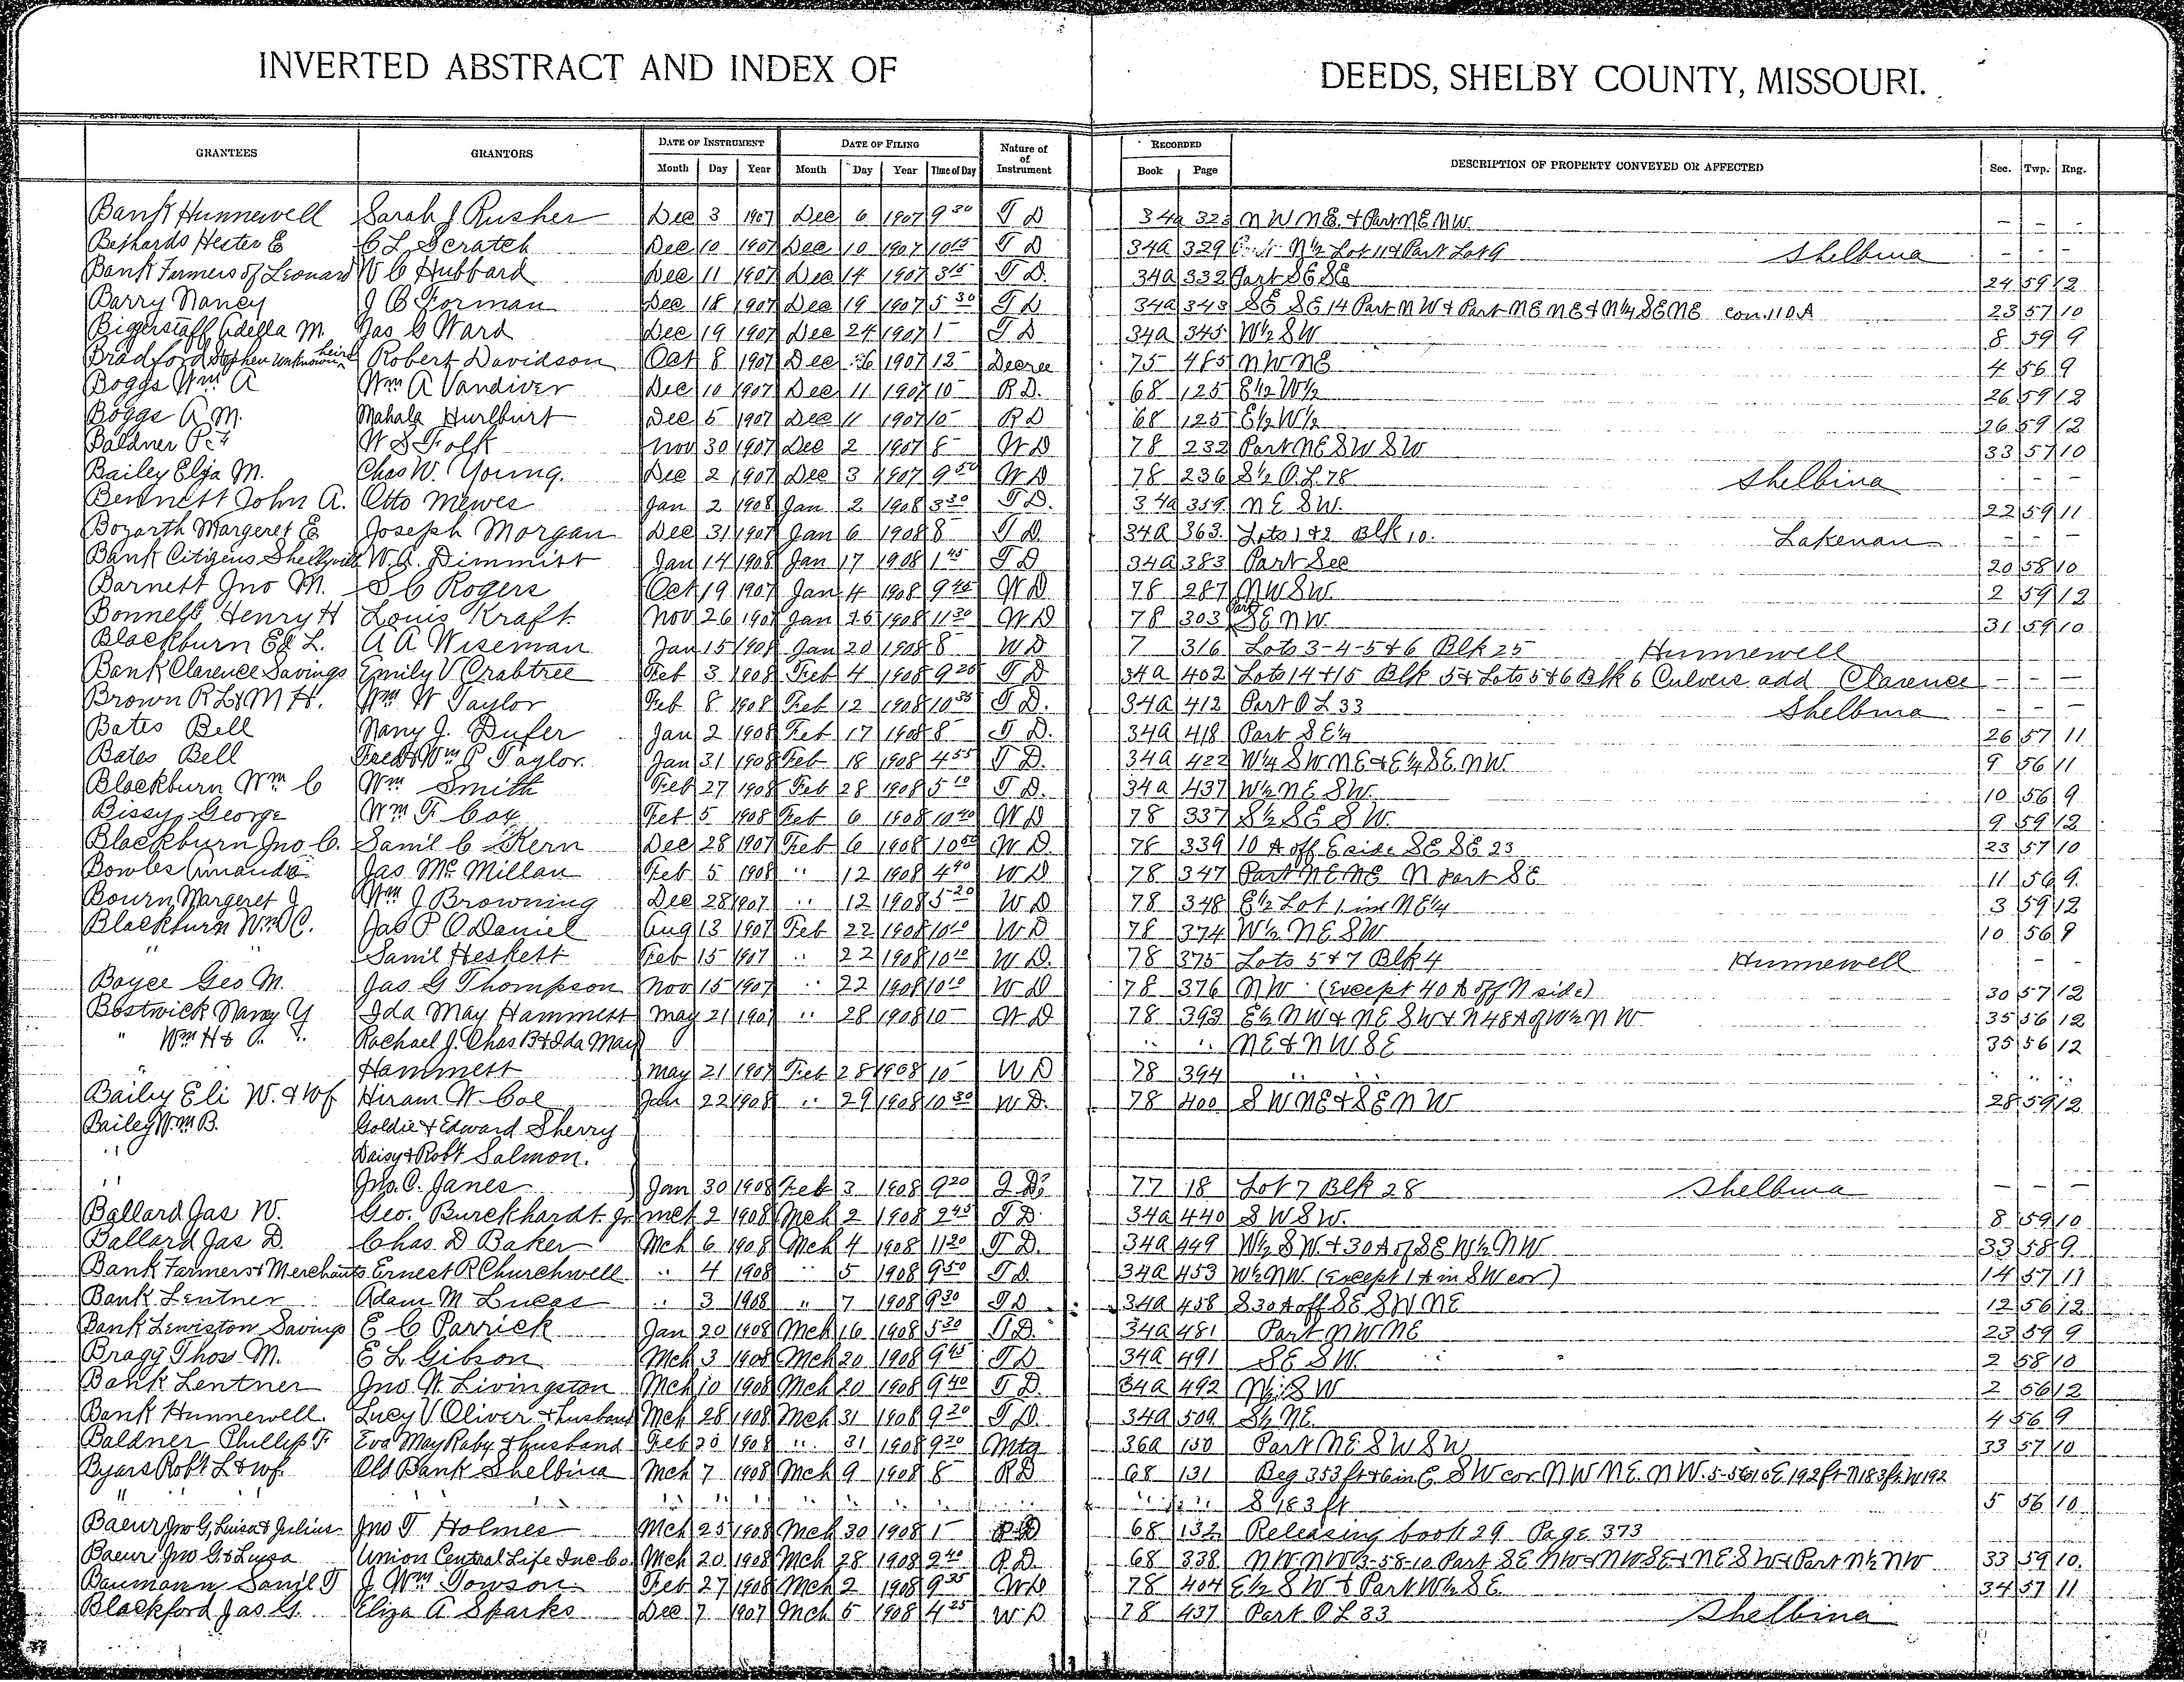 INVERTED ABSTRACT AND INDEX OF DEEDS, SHELBY COUNTY, MISSOURI.
GRANTEES GRANTORS DATE OF INSTRUMENT DATE OF FILING Nature of of Instrument RECORDED DESCRIPTION OF PROPERTY CONVEYED OR AFFECTED Sec. Twp. Rng.
Month Day Year Month Day Year Time of Day Book Page
Bank Hunnewell Sarah J. Rusher Dec 3 1907 Dec 6 1907 9 30 T D 34a 323 N W N E. & Part N E N W. - - -
Bethards Hester E C L Scratch Dec 10 1907 Dec 10 1907 10 15 T D 34a 329 N½ Lot 11 & Part Lot 9 Shelbina - - -
Bank Farmers of Leonard W C Hubbard Dec 11 1907 Dec 14 1907 3 15 T D. 34a 332 Part S E S E 24 59 12
Barry Nancy J B Forman Dec 18 1907 Dec 19 1907 5 30 T D 34a 343 S E S E 14 Part N W & Part N E N E & N¼ S E N E con. 110 A 23 57 10
Biggerstaff Adella M. Jas C Ward Dec 19 1907 Dec 24 1907 1 - T D 34a 345 W½ S W 8 59 9
Bradford Stephen unknown heirs Robert Davidson Oct 8 1907 Dec 26 1907 12 - Decree 75 485 N W N E 4 56 9
Boggs Wm A Wm A Vandiver Dec 10 1907 Dec 11 1907 10 - R D. 68 125 E½ W½ 26 59 12
Boggs A M. Mahala Hurlburt Dec 5 1907 Dec 11 1907 10 - R D 68 125 E½ W½ 26 59 12
Baldner P. F W S Folk Nov 30 1907 Dec 2 1907 8 - W D 78 232 Part N E S W S W 33 57 10
Bailey Elza M. Chas W. Young. Dec 2 1907 Dec 3 1907 9 50 W D 78 236 S½ O. L. 78 Shelbina - - -
Bennett John A. Otto Mewes Jan 2 1908 Jan 2 1908 3 30 T D. 34a 359 N E S W. 22 59 11
Bozarth Margeret E Joseph Morgan Dec 31 1907 Jan 6 1908 8 - T D 34a 363. Lots 1 & 2 Blk 10. Lakenan - - -
Bank Citizens Shelbyville W. A. Dimmitt Jan 14 1908 Jan 17 1908 1 45 T D 34a 383 Part Sec 20 58 10
Barnett Jno M. S C Rogers Oct 19 1907 Jan 4 1908 9 45 W D 78 287 N W S W. 2 59 12
Bonnell Henry H Louis Kraft Nov 26 1907 Jan 15 1908 11 30 W D 78 303 Part S E N W 31 59 10
Blackburn Ed L. A A Wiseman Jan 15 1908 Jan 20 1908 8 - W D 7 316 Lots 3-4-5 & 6 Blk 25 Hunnewell
Bank Clarence Savings Emily V Crabtree Feb 3 1908 Feb 4 1908 9 25 T D 34a 402 Lots 14 & 15 Blk 5 & Lots 5 & 6 Blk 6 Culvers add Clarence - - -
Brown R L & M H. Wm W Taylor Feb 8 1908 Feb 12 1908 10 35 T D. 34a 412 Part O L 33 Shelbina - - -
Bates Bell Nany J. Dufer Jan 2 1908 Feb 17 1908 8 - T D. 34a 418 Part S E¼ 26 57 11
Bates Bell Fred & Wm P Taylor Jan 31 1908 Feb 18 1908 4 55 T D. 34a 422 W¼ S W N E & E¼ S E. N W. 9 56 11
Blackburn Wm C Wm Smith Feb 27 1908 Feb 28 1908 5 10 T D. 34a 437 W½ N E S W. 10 56 9
Bissy George Wm F Cox Feb 5 1908 Feb 6 1908 10 40 W D 78 337 S½ S E S W. 9 59 12
Blackburn Jno C. Saml C Kern Dec 28 1907 Feb 6 1908 10 50 W D. 78 339 10 A off E side S E S E 23 23 57 10
Bowles Amanda Jas Mc Millan Feb 5 1908 " 12 1908 4 40 W D 78 347 Part N E N E N part S E 11 56 9.
Bourn Margeret J Wm J Browning Dec 28 1907 " 12 1908 5 20 W D 78 348 E½ Lot 1 in N E¼ 3 59 12
Blackburn Wm C. Jas P O Daniel Aug 13 1907 Feb 22 1908 10 10 W D 78 374 W½ N E S W 10 56 9
" " Saml Heskett Feb 15 1907 " 22 1908 10 10 W D. 78 375 Lots 5 & 7 Blk 4 Hunnewell - -
Boyce Geo M. Jas G Thompson Nov 15 1907 " 22 1908 10 10 W D 78 376 N W (Except 40 A off N side) 30 57 12
Bostwick Nancy Y Ida May Hammett May 21 1907 " 28 1908 10 - W D 78 393 E½ N W & N E S W & N 48 A of W½ N W 35 56 12
" Wm H & Rachael J. Chas B & Ida May " " N E & N W S E 35 56 12
" Hammett May 21 1907 Feb 28 1908 10 - W D 78 394 " " " " "
Baily Eli W. & Wf Hiram W. Coe Jan 22 1908 " 29 1908 10 30 W D. 78 400 S W N E & S E N W 28 59 12
Bailey Wm B. Goldie & Edward Sherry
" Daisy & Robt Salmon.
" Jno. C. Janes Jan 30 1908 Feb 3 1908 9 20 Q D. 77 18 Lot 7 Blk 28 Shelbina - - -
Ballard Jas W. Geo. Burckhardt Jr Mch 2 1908 Mch 2 1908 2 45 T D 34a 440 S W S W. 8 59 10
Ballard Jas D. Chas D Baker Mch 6 1908 Mch 4 1908 11 20 T D. 34a 449 W½ S W. & 30 A of S E W½ N W 33 58 9
Bank Farmers & Merchants Ernest R Churchwell " 4 1908 " 5 1908 9 50 T D 34a 453 W½ N W. (Except 1 A in S W cor) 14 57 11
Bank Lentner Adam M Lucas " 3 1908 " 7 1908 9 30 T D 34a 458 S 30 A off S E S W N E 12 56 12
Bank Lewiston Savings E C Parrick Jan 20 1908 Mch 16 1908 5 30 T D. 34a 481 Part N W N E 23 59 9
Bragg Thos M. E L Gibson Mch 3 1908 Mch 20 1908 9 45 T D 34a 491 S E S W. 2 58 10
Bank Lentner Jno W. Livingston Mch 10 1908 Mch 20 1908 9 40 T D. 34a 492 N½ S W 2 56 12
Bank Hunnewell. Lucy V Oliver & husband Mch 28 1908 Mch 31 1908 9 20 T D. 34a 509 S½ N E. 4 56 9
Baldner Phillip F Eva May Raby & husband Feb 20 1908 " 31 1908 9 20 Mtg 36a 150 Part N E S W S W 33 57 10
Byars Robt L & wf. Old Bank Shelbina Mch 7 1908 Mch 9 1908 8 - R D 68 131 Beg 353 ft & 6 in E. S W cor N W N E. N W. 5-56-10 E. 192 ft N 183 ft W 192
" " " " " " " " " S 183 ft 5 56 10
Baeur Jno G, Luisa & Julius Jno T Holmes Mch 25 1908 Mch 30 1908 1 - R D 68 132 Releasing book 29 Page 373
Baeur Jno G & Luysa Union Central Life Ins Co. Mch 20 1908 Mch 28 1908 2 40 R D. 68 338 N W N W 3-58-10 Part S E N W & N W S E & N E S W & Part N½ N W 33 59 10.
Baumann Saml T J Wm Towson Feb 27 1908 Mch 2 1908 9 35 W D 78 404 E½ S W & Part W½ S E 34 57 11
Blackford Jas G. Eliza A Sparks Dec 7 1907 Mch 5 1908 4 25 W D 78 437 Part O L 33 Shelbina